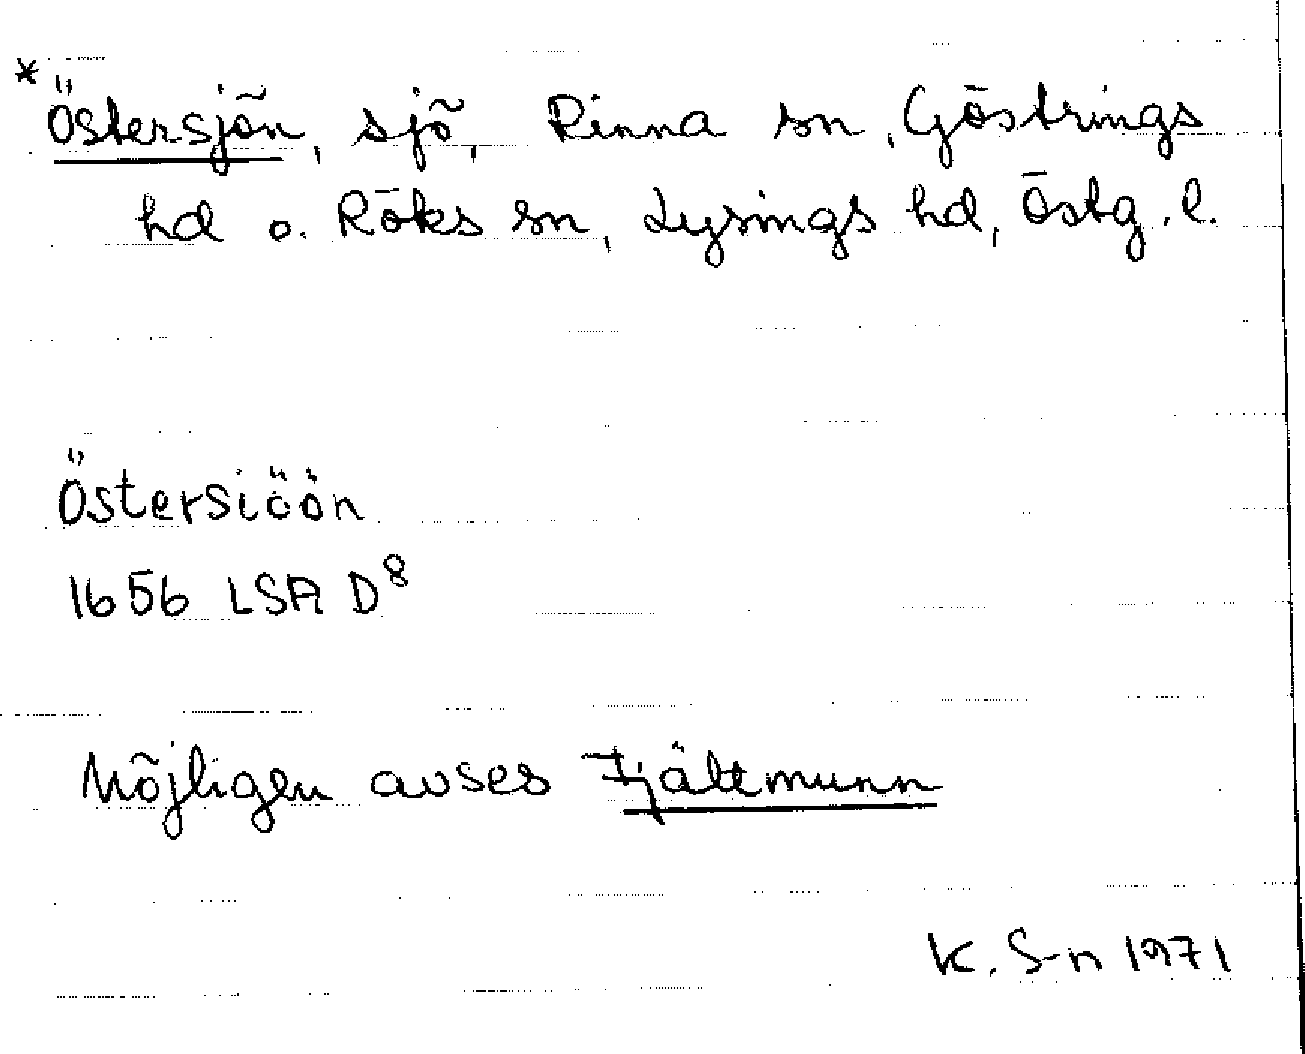 * Östersjön, sjö, Rinna sn, Göstrings
hd o. Röks sn, Lysings hd, Östg. l.
Östersiöön
1656 LSA D⁸
Möjligen avses Fjältmunn
K. S-n 1971